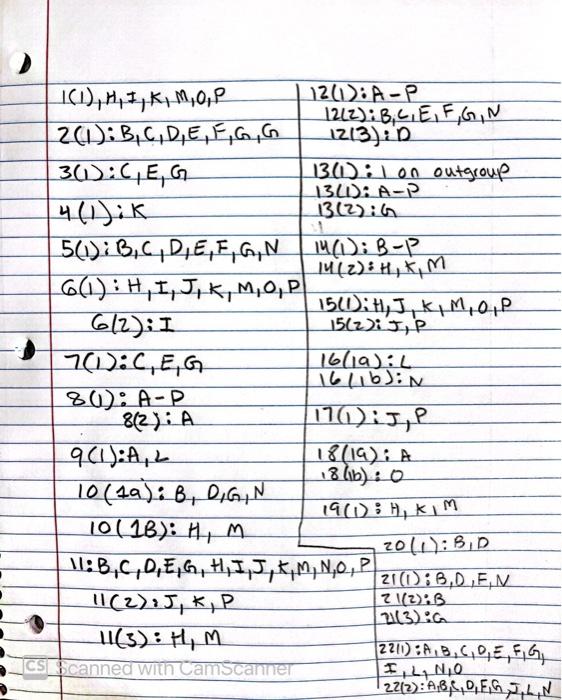 1(1), H, I, K, M, O, P
2(1): B, C, D, E, F, G, G
3(1): C, E, G
4(1): K
5(1): B, C, D, E, F, G, N
6(1): H, I, J, K, M, O, P
6(2): I
7(1): C, E, G
8(1): A-P
8(2): A
9(1): A, L
10(1a): B, D, G, N
10(1B): H, M
11: B, C, D, E, G, H, I, J, K, M, N, O, P
11(2): J, K, P
11(3): H, M
12(1): A-P
12(2): B, C, E, F, G, N
12(3): D
13(1): 1 on outgroup
13(1): A-P
13(2): G
14(1): B-P
14(2): H, K, M
15(1): H, J, K, M, O, P
15(2): J, P
16(1a): L
16(1b): N
17(1): J, P
18(1a): A
18(1b): O
19(1): H, K, M
20(1): B, D
21(1): B, D, F, N
21(2): B
21(3): G
22(1): A, B, C, D, E, F, G,
I, L, N, O
22(2): A, B, C, D, F, G, I, L, N
CS Scanned with CamScanner